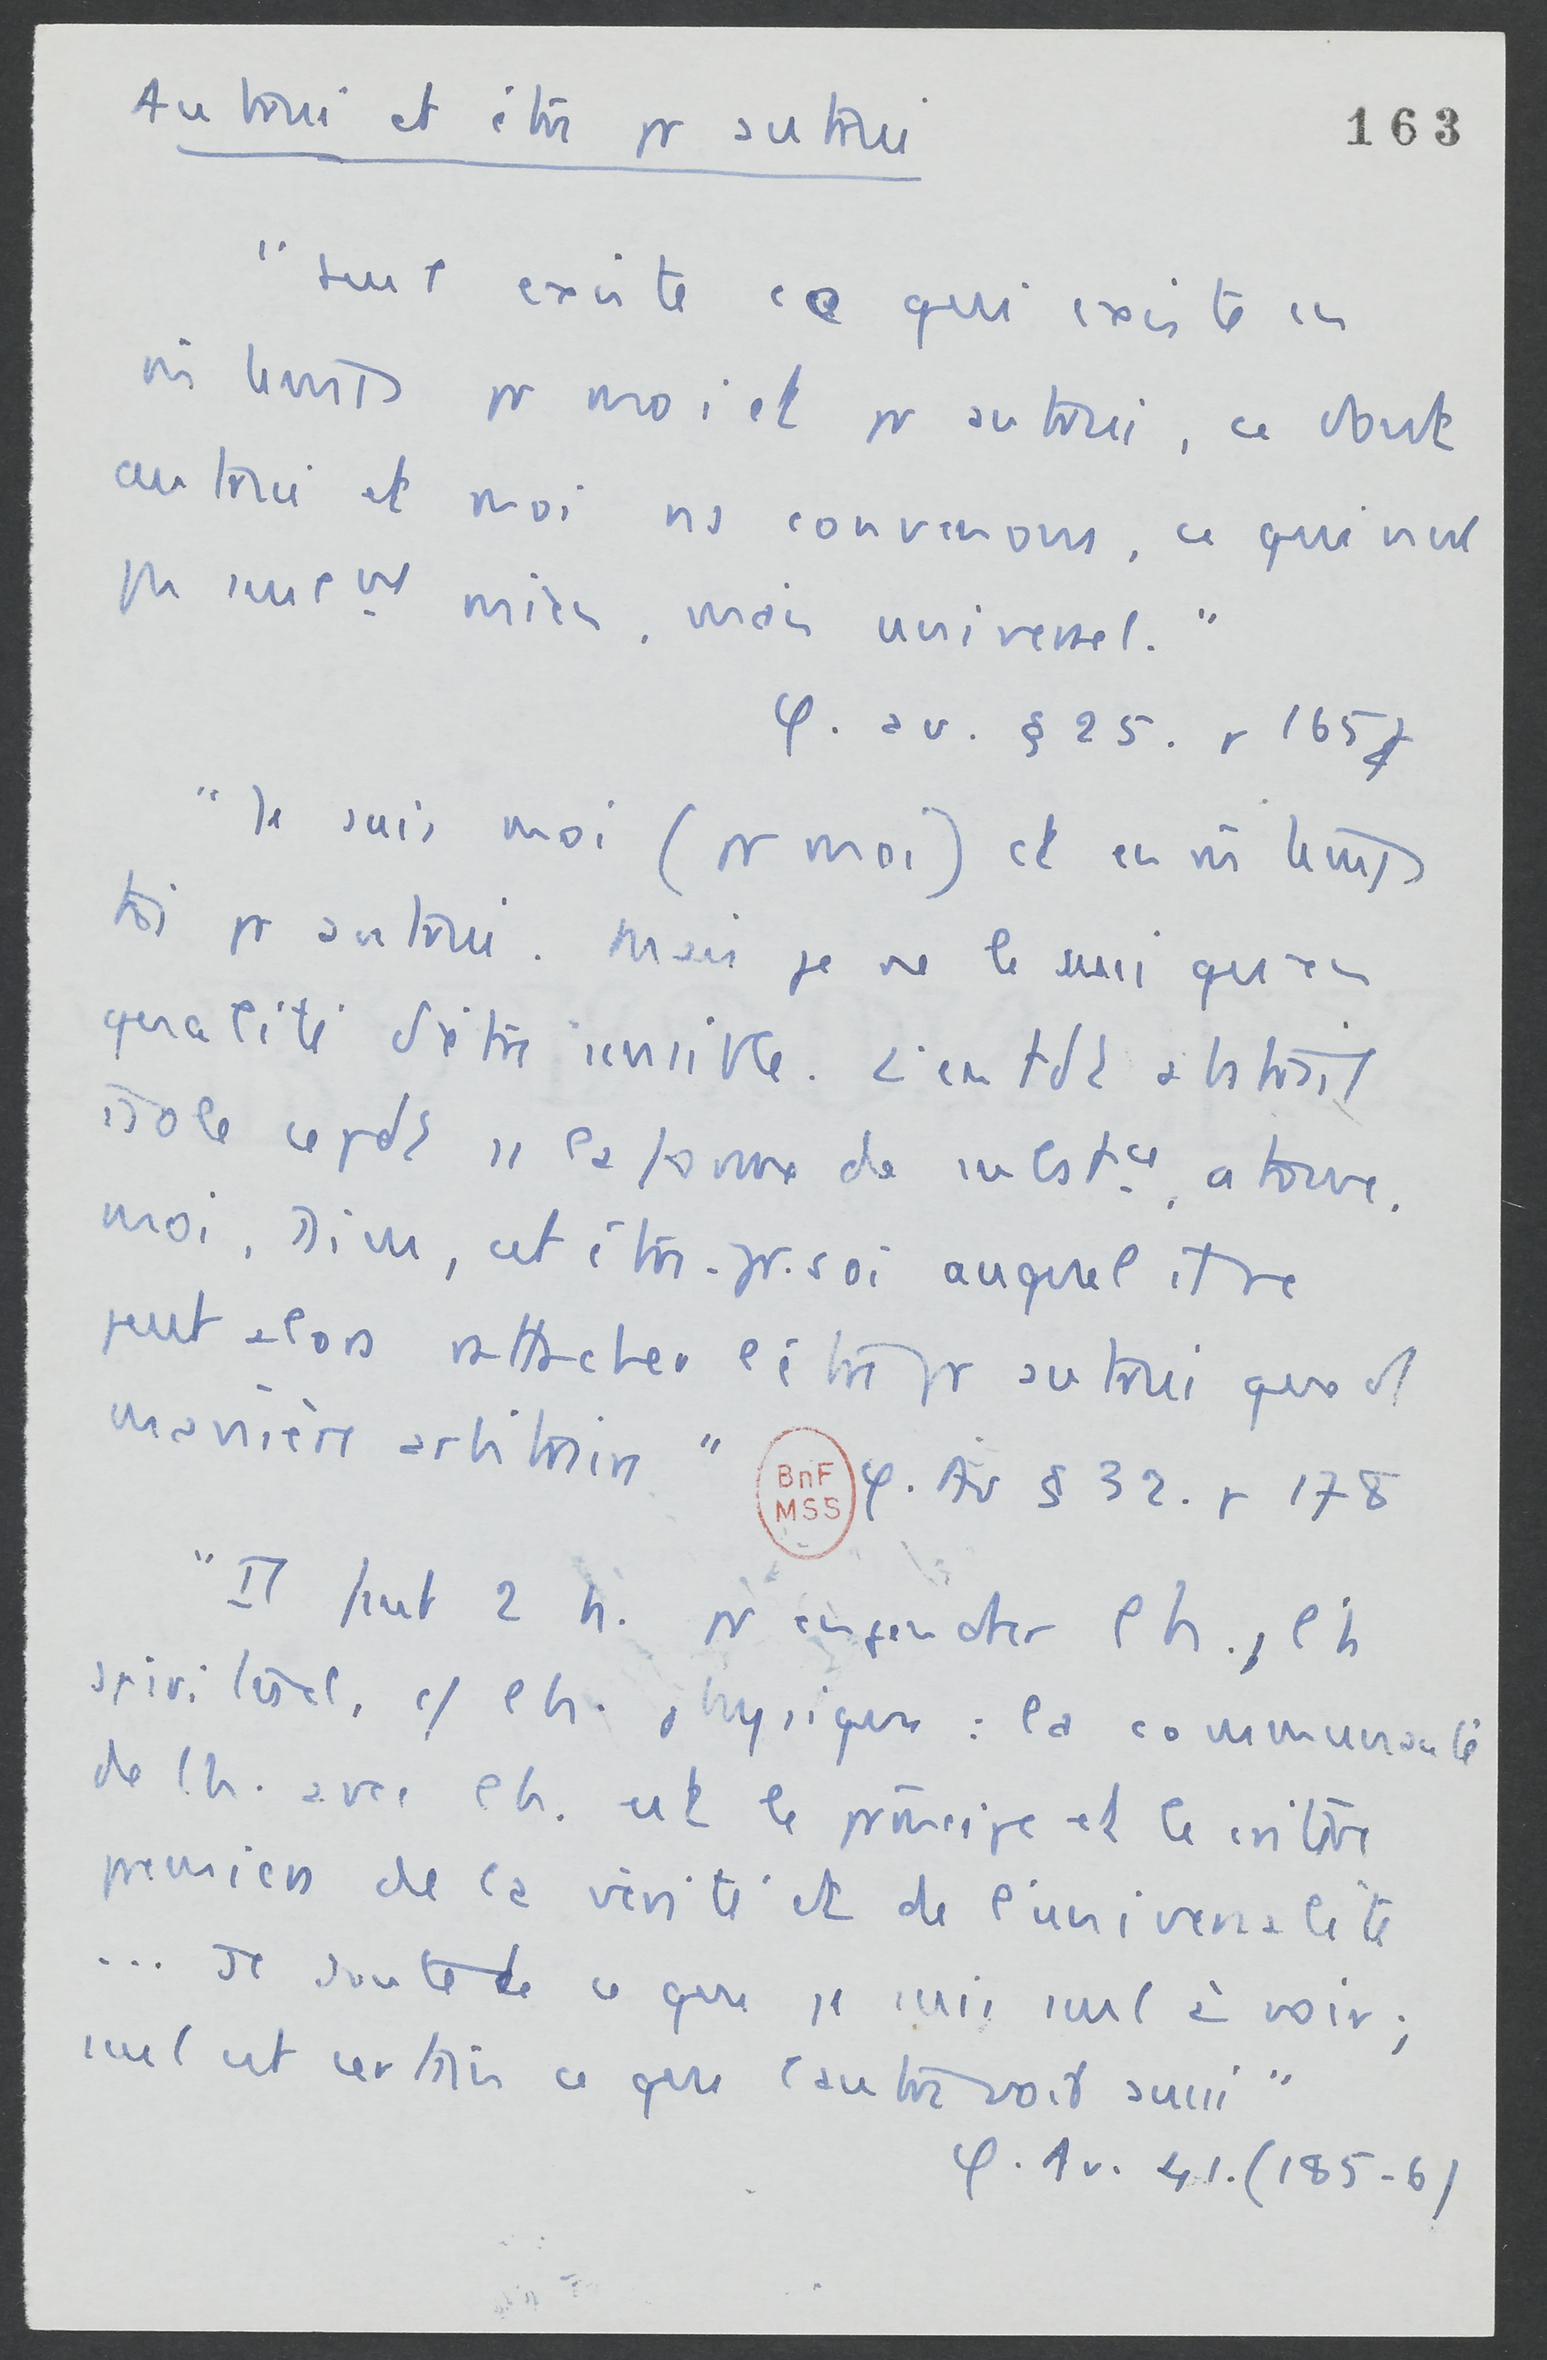 Autrui et être pr autrui
163
"Seul existe ce qui existe en
m temps pr moi et pr autrui, ce dont
autrui et moi ns convenons, ce qui n'est
pas seult mien, mais universel."
φ. av. § 25. p 165
"Je suis moi (pr moi) et en m temps
toi pr autrui. Mais je ne le suis qu'en
qualité d'être sensible. L'entdt abstrait
isole cepdt ss la forme de substce, atome,
moi, Dieu, cet être-pr-soi auquel il ne
peut alors rattacher l'être pr autrui que d
manière arbitraire"
BnF
MSS
φ. Av § 32. p 178
"Il faut 2 h. pr engendrer l h., l h
spirituel, c/ l h. physique : la communauté
de l h. avec l h. est le principe et le critère
premiers de la vérité et de l'universalité
... Je doute de ce que je suis seul à voir ;
seul est certain ce que l'autre voit aussi"
φ. Av. 41. (185-6)